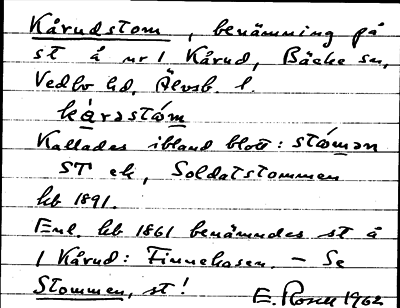 Kårudstom, benämning på
st å nr 1 Kårud, Bäcke sn,
Vedbo hd, Älvsb. l.
kårastǻm
Kallades ibland blott: stǻmən
ST ek, Soldatstommen
hb 1891.
Enl. hb 1861 benämndes st å
1 Kårud: Finnekasen. – Se
Stommen, st!
E. Rosell 1962